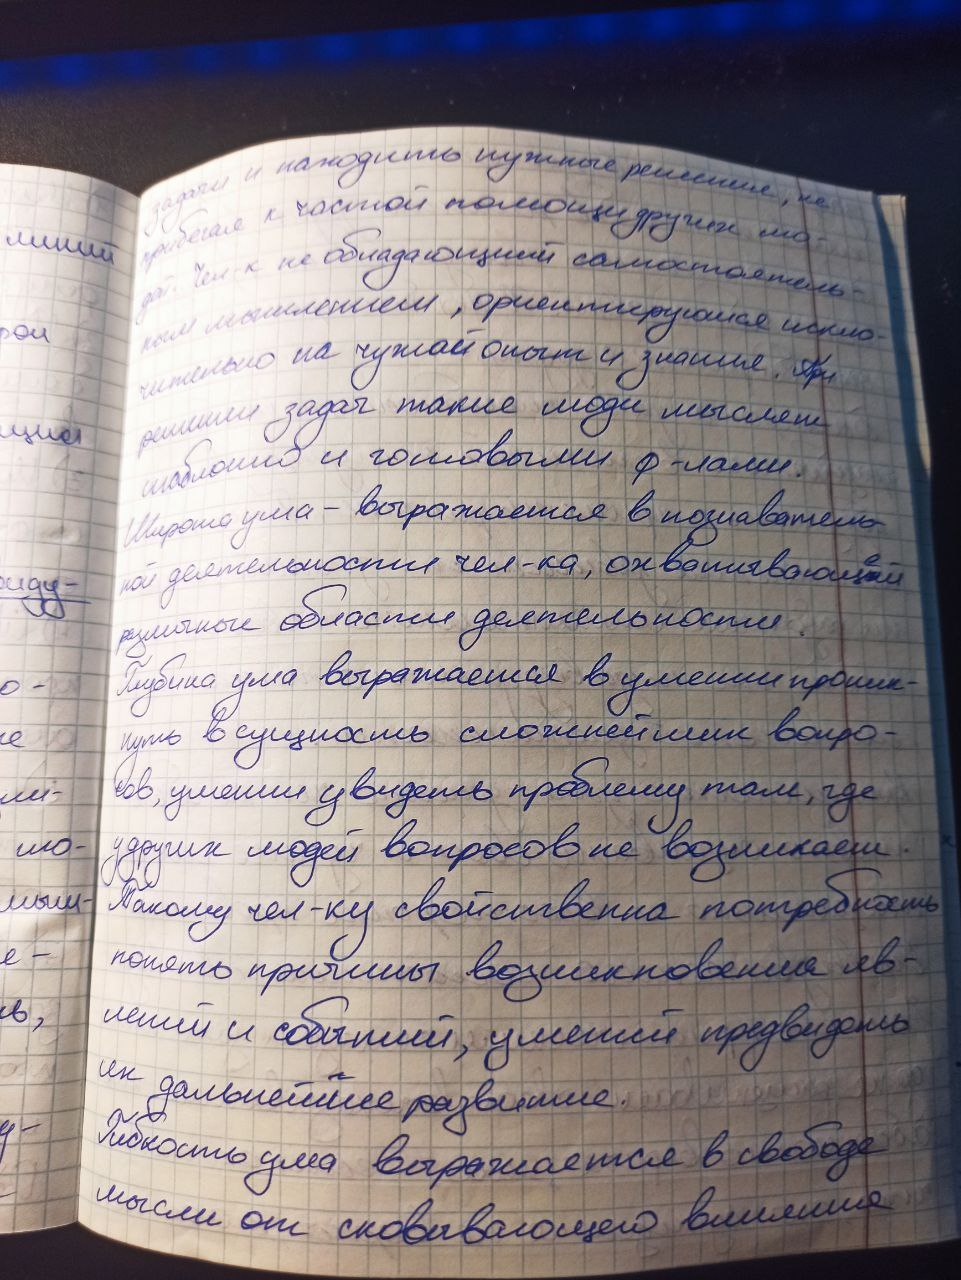 задачи и находить нужные решения, не
прибегая к частой помощи других лю-
дей. Чел-к не обладающий самостоятель-
ным мышлением, ориентируется исклю-
чительно на чужой опыт и знания. При
решении задач такие люди мыслят
шаблонно и готовыми ф-лами.
Широта ума - выражается в познаватель
ной деятельности чел-ка, охватывающей
различные области деятельности.
Глубина ума выражается в умении проник-
нуть в сущность сложнейших вопро-
сов, умении увидеть проблему там, где
у других людей вопросов не возникает.
Такому чел-ку свойственна потребность
понять причины возникновения яв-
лений и событий, умений предвидеть
их дальнейшее развитие.
Гибкость ума выражается в свободе
мысли от сковывающего влияния